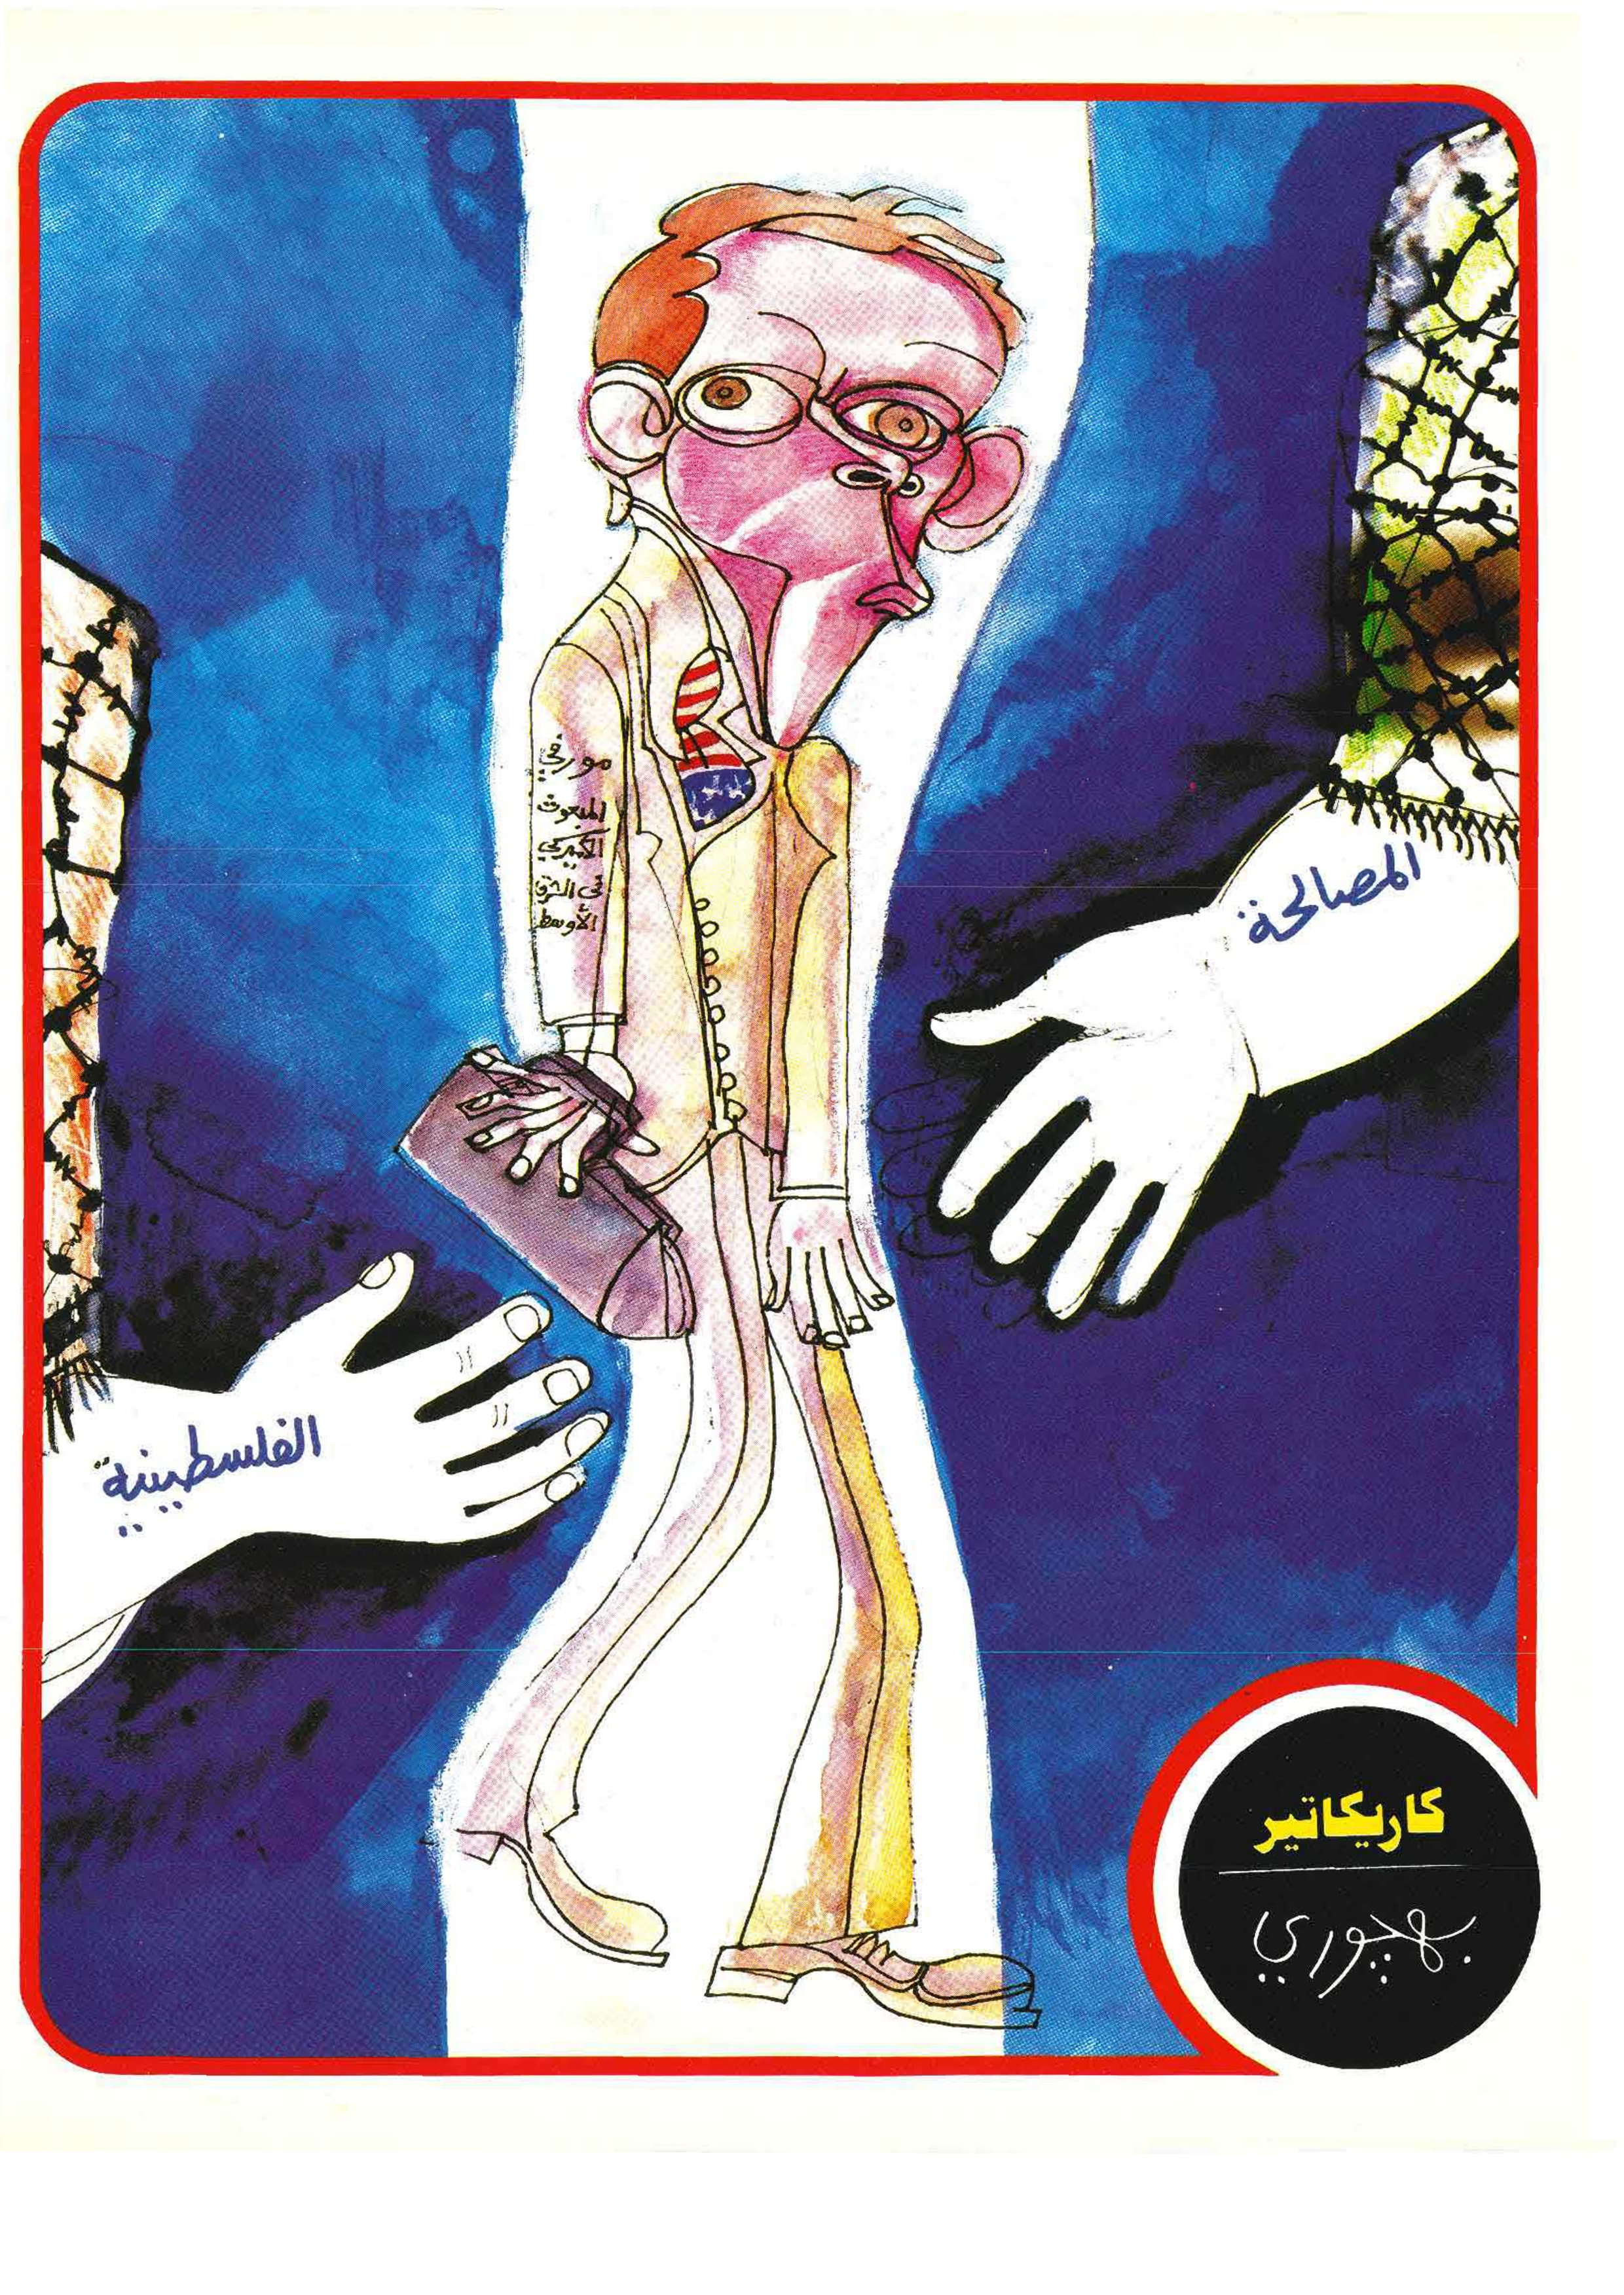 مورفي
المبعوث
الأميركي
في الشرق
الأوسط
المصالحة
الفلسطينية
كاريكاتير
بهجوري